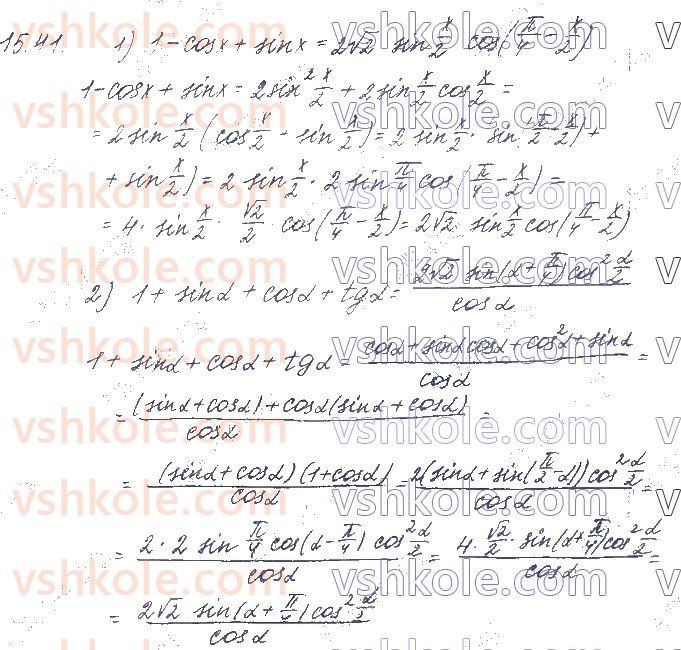 15.41. 1) 1-cosx + sinx = 2√2 sin x/2 cos(π/4 - x/2)
1-cosx + sinx = 2sin² x/2 + 2sin x/2 cos x/2 =
= 2sin x/2 (cos x/2 - sin x/2) = 2 sin x/2 · sin(π/2 - x/2) +
+ sin x/2) = 2 sin x/2 · 2 sin π/4 cos(π/4 - x/2) =
= 4 · sin x/2 · √2/2 · cos(π/4 - x/2) = 2√2 sin x/2 cos(π/4 - x/2)
2) 1 + sinα + cosα + tgα = 2√2 sin(α + π/4) cos² α/2 / cosα
1 + sinα + cosα + tgα = cosα + sinα cosα + cos²α + sinα / cosα =
= (sinα + cosα) + cosα(sinα + cosα) / cosα =
= (sinα + cosα)(1 + cosα) / cosα = 2(sinα + sin(π/2 - α)) cos² α/2 / cosα =
= 2 · 2 sin π/4 cos(α - π/4) cos² α/2 / cosα = 4 · √2/2 · sin(α + π/4) cos² α/2 / cosα =
= 2√2 sin(α + π/4) cos² α/2 / cosα
vshkole.com